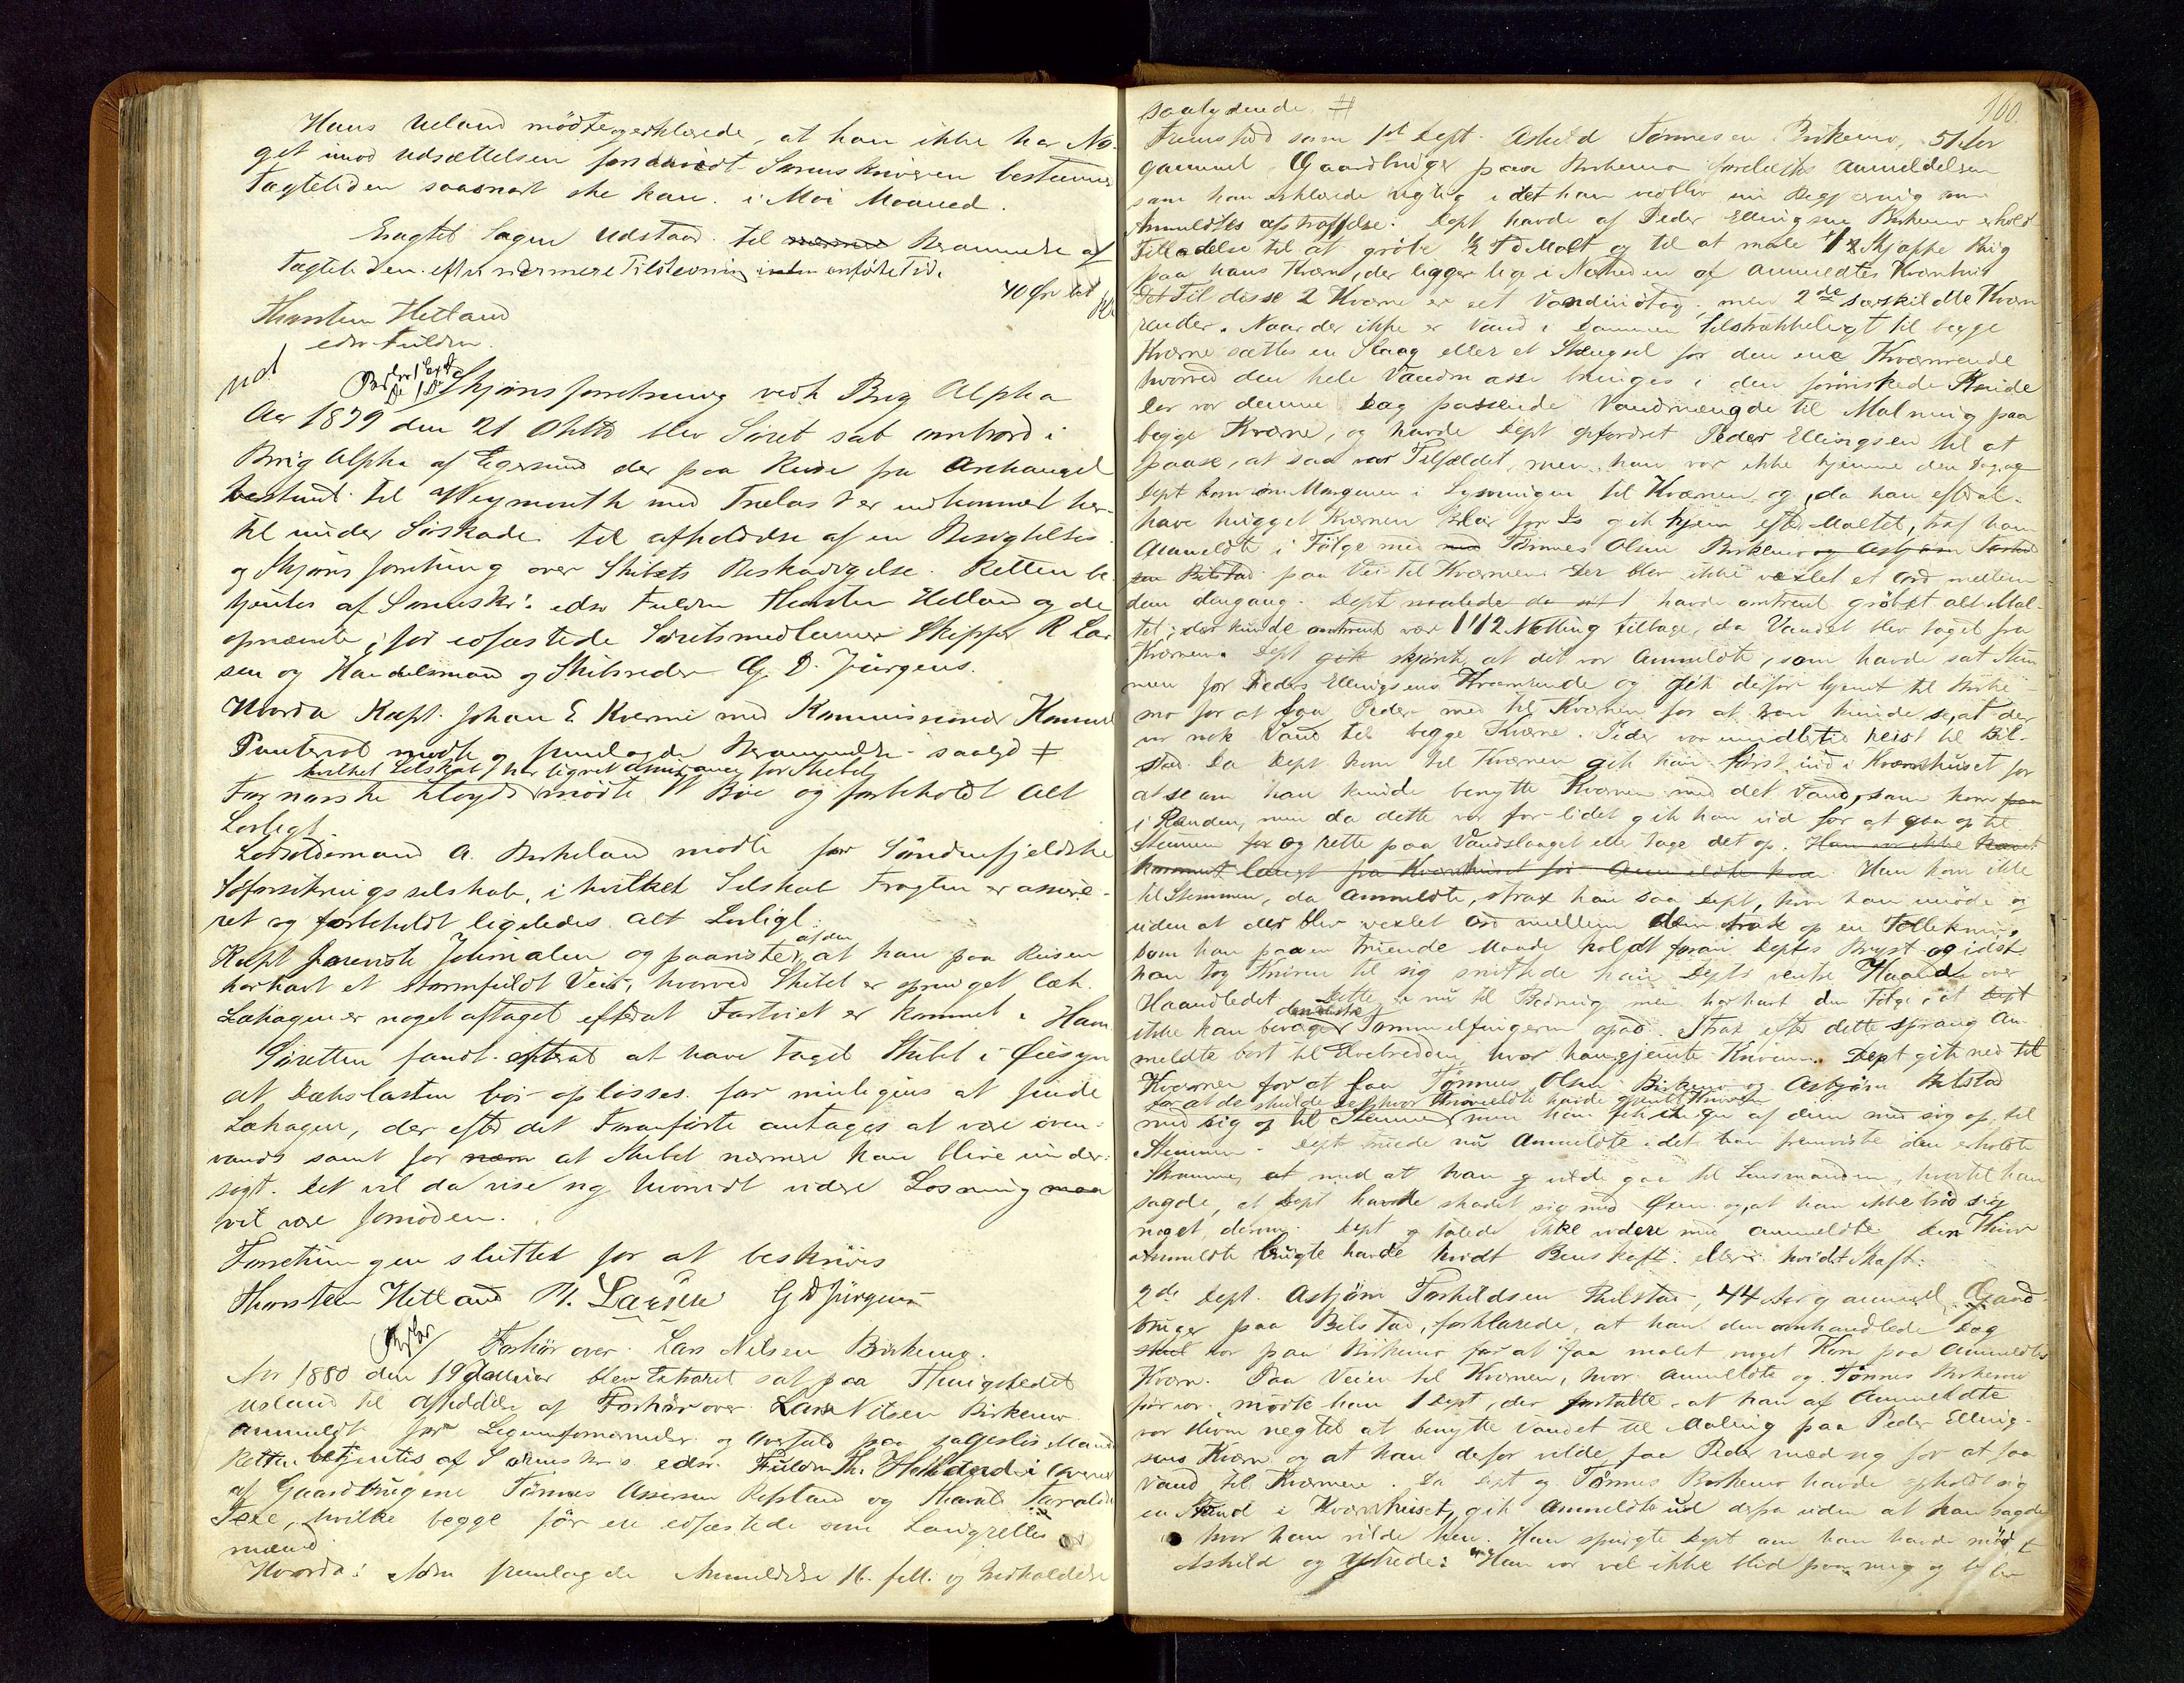 Hans Ueland mødte og erklærede, at han ikke har No-
get imod Udsættelsen forsaavidt Sorenskriveren bestemmer
Tægtetiden saasnart ske kan i Mai Maaned.
Eragtet Sagen udstaar til Berammelse af
Tægtetiden efter nærmere Tilstevning anførte Tid.
40 Øre bet
Thorsten Hetland
edsv Fuldm.
Skjønsforretning vedk Brig Alpha
Aar 1879 den 21 Oktb blev Søret sat ombord i
Brig Alpha af Egersund der paa Reise fra Archangel
bestemt til Weymouth med Trælast er indkommet her-
til under Søskade til afholdelse af en Besigtelses
og Skjønsforretning over Skibets Beskadigelse. Retten be-
tjentes af Sorenskr's edsv Fuldm Thorsten Hetland og de
opnævnte, før edfæstede Søretsmedlemmer Skipper R Lar
sen og Handelsmand og Skibsreder G. D. Jürgens.
Hvorda Kapt. Johan E Kverme med Kommissionær Konsul
Puntervol mødte og fremlagde Berammelse saalyd #
hvilket Selskab har tegnet Assurance for Skibet
For norske Lloyd mødte W Bøe og forbeholdt Alt
Lovligt
Lodsoldermand A. Birkeland mødte for Søndenfjeldske
Søforsikringsselskab, i hvilket Selskab Fragten er assure-
ret og forbeholdt ligeledes Alt Lovligt.
Kapt foreviste Journalen og paaviste af den at han paa Reisen
har havt et stormfuldt Veir, hvorved Skibet er sprunget læk.
Lækagen er noget aftaget efterat Fartøiet er kommet i Havn
Søretten fandt efterat at have taget Skibet i Øiesyn
at Dækslasten bør oplosses for muligens at finde
Lækagen, der efter det Foranførte antages at være oven-
vands samt for at Skibet nærmere kan blive under-
søgt. Det vil da vise sig hvorvidt videre Losning maa
vil være fornøden.
Forretningen sluttet for at beskrives
Thorsten Hetland R. Larsen G D Jürgens
Forhør over Lars Nilsen Birkemo.
Aar 1880 den 19 Januar blev Extraret sat paa Thingstedet
Ueland til Afholdelse af Forhør over Lars Nilsen Birkemo
anmeldt for Legemsfornærmelse og Overfald paa sagesløs Mand
Retten betjentes af Sorenskr's edsv. Fuldm Th. Hetland i Overvær
af Gaardbrugerne Tønnes Assersen Refsland og Tharald Taralds
Tore, hvilke begge før ere edfæstede som Laugretts-
mænd
Hvorda: Adm fremlagde Anmeldelse 16. f.M. og Indkaldelse
160.
saalydende #
Fremstod som 1ste Dept. Askild Tønnesen Birkemo, 51 Aar
gammel Gaardbruger paa Birkemo forelæstes Anmeldelsen
som han erklærede rigtig idet han vedblev sin Begjæring om
Anmeldtes Afstraffelse. Dept havde af Peder Ellingsen Birkemo erholdt
Tilladelse til at grøbe 1/2 Td Malt og til at male 1 1/2 Skjæppe Rug
paa hans Kværn, der ligger lige i Nærheden af Anmeldtes Kværnhus
Det til disse 2 Kværne er eet Vandindtag, men 2de særskildte Kværn
render. Naar der ikke er Vand i Dammen tilstrækkeligt til begge
Kværne sættes en Skaag eller et Stængsel for den ene Kværnrende
hvorved den hele Vandmasse bringes i den forønskede Rende
Der var denne Dag passende Vandmængde til Malning paa
begge Kværne, og havde Dept opfordret Peder Ellingsen til at
paase, at saa var Tilfældet, men han var ikke hjemme den Dag, og
Dept kom om Morgenen i Lysningen til Kværnen og, da han efter at
have hugget Kværnen klar for Is gik hjem efter Maltet, traf han
Anmeldte i Følge med Tønnes Olsen Birkemo og Asbjørn Torkild
sen Bilstad paa Vei til Kværnen. Der blev ikke vexlet et Ord mellem
dem dengang. Dept malede da sit havde omtrent grøbet alt Mal-
tet; der kunde omtrent var 1 1/2 Netting tilbage, da Vandet blev taget fra
Kværnen. Dept gik skjønte, at det var Anmeldte, som havde sat Stem
men for Peders Ellingsens Kværnrende og gik derfor hjem til Birke-
mo for at faa Peder med til Kværnen for at han kunde se, at der
var nok Vand til begge Kværne. Peder var imidlertid reist til Bil-
stad. Da Dept kom til Kværnen gik han først ind i Kværnhuset for
at se om han kunde benytte Kværnen med det Vand, som kom
i Renden, men da dette var for lidet gik han ud for at gaa op til
Stemmen for og rette paa Vandslaaget eller tage det op. Han var ikke
kommet langt fra Kværnhuset før Anmeldte kom. Han kom ikke
til Stemmen, da Anmeldte, strax han saa Dept, kom ham imøde og
uden at der blev vexlet Ord mellem dem trak op en Follekniv,
som han paa en truende Maade holdt foran Depts Bryst og idet
han tog Kniven til sig snittede han Depts venstre Haand over
Haandledet. Dette er nu til Bedring men har havt den Følge, at Dept
ikke kan bevæge den venstre Tommelfingeren opad. Strax efter dette sprang An-
meldte bort til Elvebredden hvor han gjemte Kniven. Dept gik ned til
Kværnen for at faa Tønnes Olsen Birkemo og Asbjørn Bilstad
for at de skulde se, hvor Anmeldte havde gjemt Kniven
med sig op til Stemmen, men han fik ingen af dem med sig op til
Stemmen. Dept truede nu Anmeldte idet han fremviste den erholdte
Skramme, med at han vilde gaa til Lensmanden, hvortil han
sagde, at Dept havde skadet sig med Øxen og at han ikke brød sig
noget derom. Dept talede ikke videre med Anmeldte. Den Kniv
Anmeldte brugte havde hvidt Benskaft eller hvidt Skaft.
2de Dept. Asbjørn Torkildsen Bilstad, 44 Aar gammel, Gaard-
bruger paa Bilstad, forklarede, at han den omhandlede Dag
var paa Birkemo for at faa malet noget Korn paa Anmeldtes
Kværn. Paa Veien til Kværnen, hvor Anmeldte og Tønnes Birkemo
før var, mødte han 1 Dept, der fortalte, at han af Anmeldte
var bleven negtet at benytte Vandet til Maling paa Peder Elling-
sens Kværn og at han derfor vilde faa Peder med sig for at faa
Vand til Kværnen. Da Dept og Tønnes Birkemo havde opholdt sig
en Stund i Kværnhuset, gik Anmeldte ud derfra uden at han sagde
hvor han vilde hen. Han spurgte Dept om han havde mødt
Askild og yttrede: "Han var vel ikke blid paa mig og